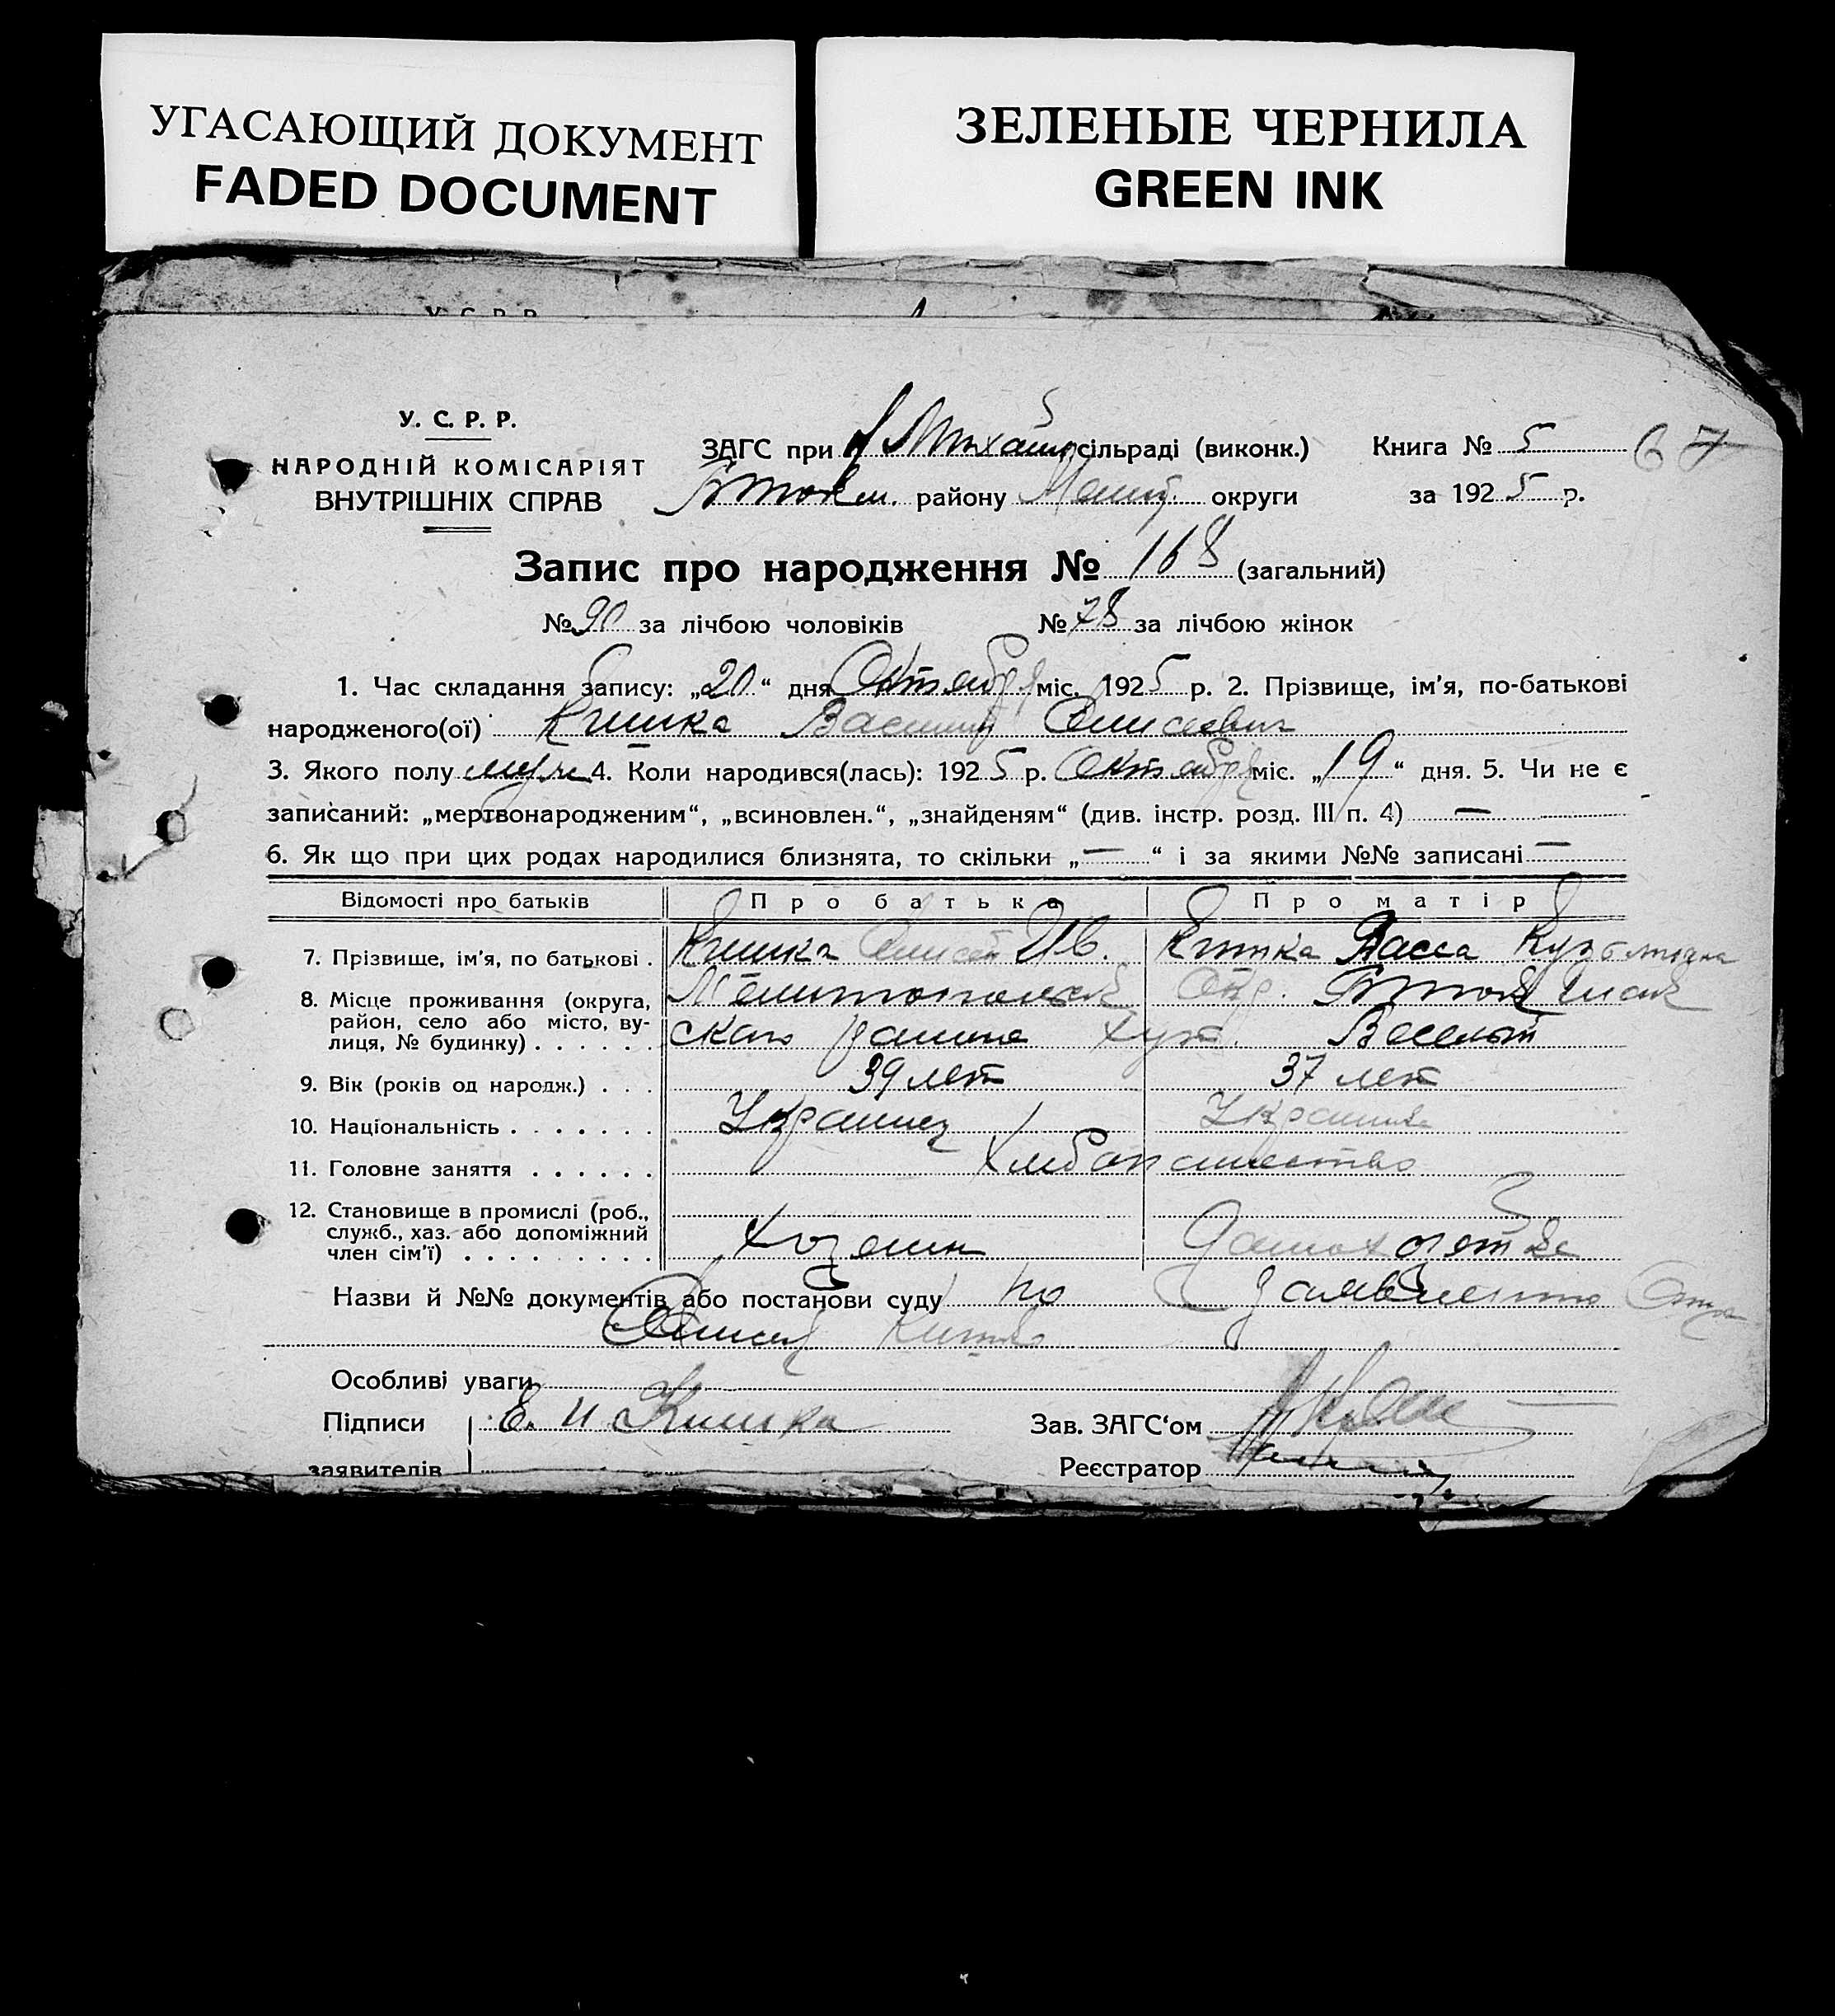 УГАСАЮЩИЙ ДОКУМЕНТ
FADED DOCUMENT
ЗЕЛЕНЫЕ ЧЕРНИЛА
GREEN INK
У. С. Р. Р.
У. С. Р. Р.
НАРОДНІЙ КОМІСАРІЯТ
ВНУТРІШНІХ СПРАВ
ЗАГС при Михайл сільраді (виконк.)
районy округи
Книга № 5 67
за 1925 р.
Запис про народження № 168 (загальний)
№ 90 за лічбою чоловіків № 78 за лічбою жінок
1. Час складання запису: „20“ дня Октября міс. 1925 р. 2. Прізвище, ім'я, по-батькові
народженого(ої) Кишка Василий Елисеевич
3. Якого полу муж 4. Коли народився(лась): 1925 р. Октября міс. „19“ дня. 5. Чи не є
записаний: „мертвонародженим“, „всиновлен.“, „знайденям“ (див. інстр. розд. III п. 4) —
6. Як що при цих родах народилися близнята, то скільки „—“ і за якими №№ записані —
Відомості про батьків Про батька Про матір
7. Прізвище, ім'я, по батькові . Кишка Елисей Ив. Кишка Васса Кузьминична
8. Місце проживання (округа, Мелитопольск Окр.
район, село або місто, ву- ского района хут. Веселый
лиця, № будинку) . . . . . .
9. Вік (років од народж.) . . . 39 лет 37 лет
10. Національність . . . . . . . Украинец Украинка
11. Головне заняття . . . . . . Хлебопашество
12. Становище в промислі (роб.,
служб., хаз. або допоміжний
член сім'ї) . . . . . . . . . Хозяин Домохозяйка
Назви й №№ документів або постанови суду По заявлению Отца
Елисей Кишка
Особливі уваги
Підписи Е. И Кишка Зав. ЗАГС'ом
заявителів Реєстратор